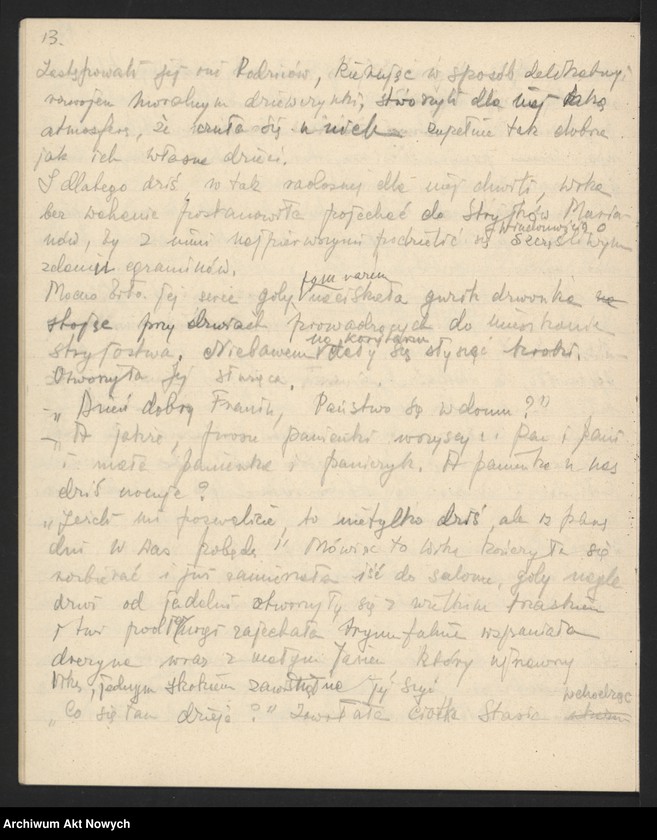 13.
Zastępowali jej oni Rodziców, kierując w sposób delikatny
rozwojem moralnym dziewczynki, stworzyli dla niej taką
atmosferę, że czuła się u nich zupełnie tak dobrze
jak ich własne dzieci.
I dlatego dziś w tak radosnej dla niej chwili,
bez wahania postanowiła pojechać do Stryjków Maria-
nów, by z nimi najpierwszymi podzielić się wiadomością o szczęśliwym
zdaniu egzaminów.
Mocno biło jej serce gdy tym razem naciskała guzik dzwonka
stojąc przy drzwiach prowadzących do mieszkania
stryjostwa. Niebawem na korytarzu dały się słyszeć kroki.
Otworzyła jej służąca.
- „Dzień dobry Franiu, Państwo są w domu?"
- „A jakże, proszę panienki wszyscy i Pan i pani
i mała panienka i paniczyk. A panienka u nas
dziś nocuje?
„Jeżeli mi pozwolicie, to nietylko dziś, ale i z parę
dni u was pobędę!" Mówiąc to kończyła się
rozbierać i już zamierzała iść do salonu, gdy nagle
drzwi od jadalni otworzyły się z wielkim trzaskiem
i tuż pod nogi zajechała tryumfalnie wspaniała
drezyna wraz z małym Jasiem który ujrzawszy
jednym skokiem zawisł na jej szyi.
„Co się tam dzieje?" Zawołała ciotka Stasia wchodząc
Archiwum Akt Nowych